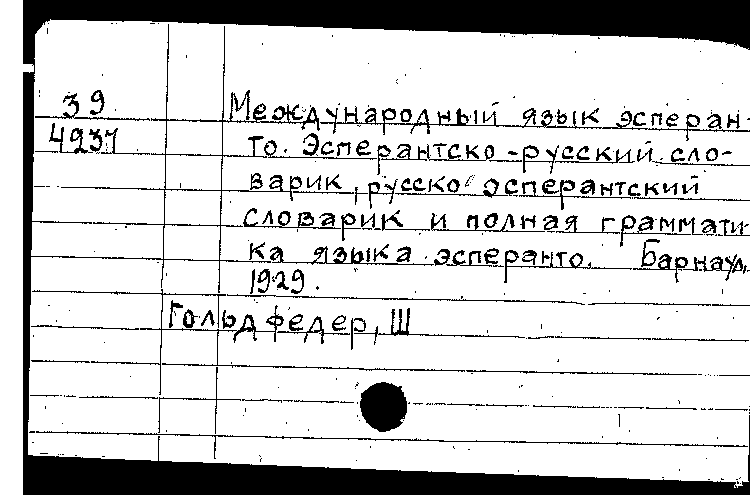 39 Международный язык эсперан-
4937 то. Эсперантско-русский сло-
варик, русско эсперантский
словарик и полная граммати
ка языка эсперанто. Барнаул,
1929.
Гольдфедер, Ш